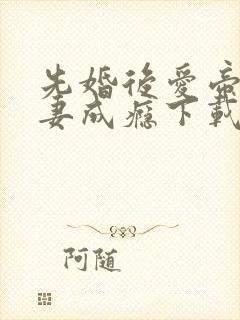 先婚後愛帝
妻成癮下載
阿随